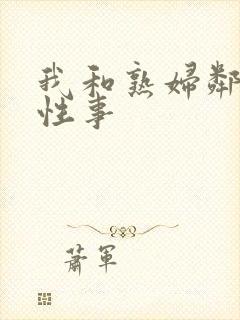 我和熟婦鄰
性事
蕭軍